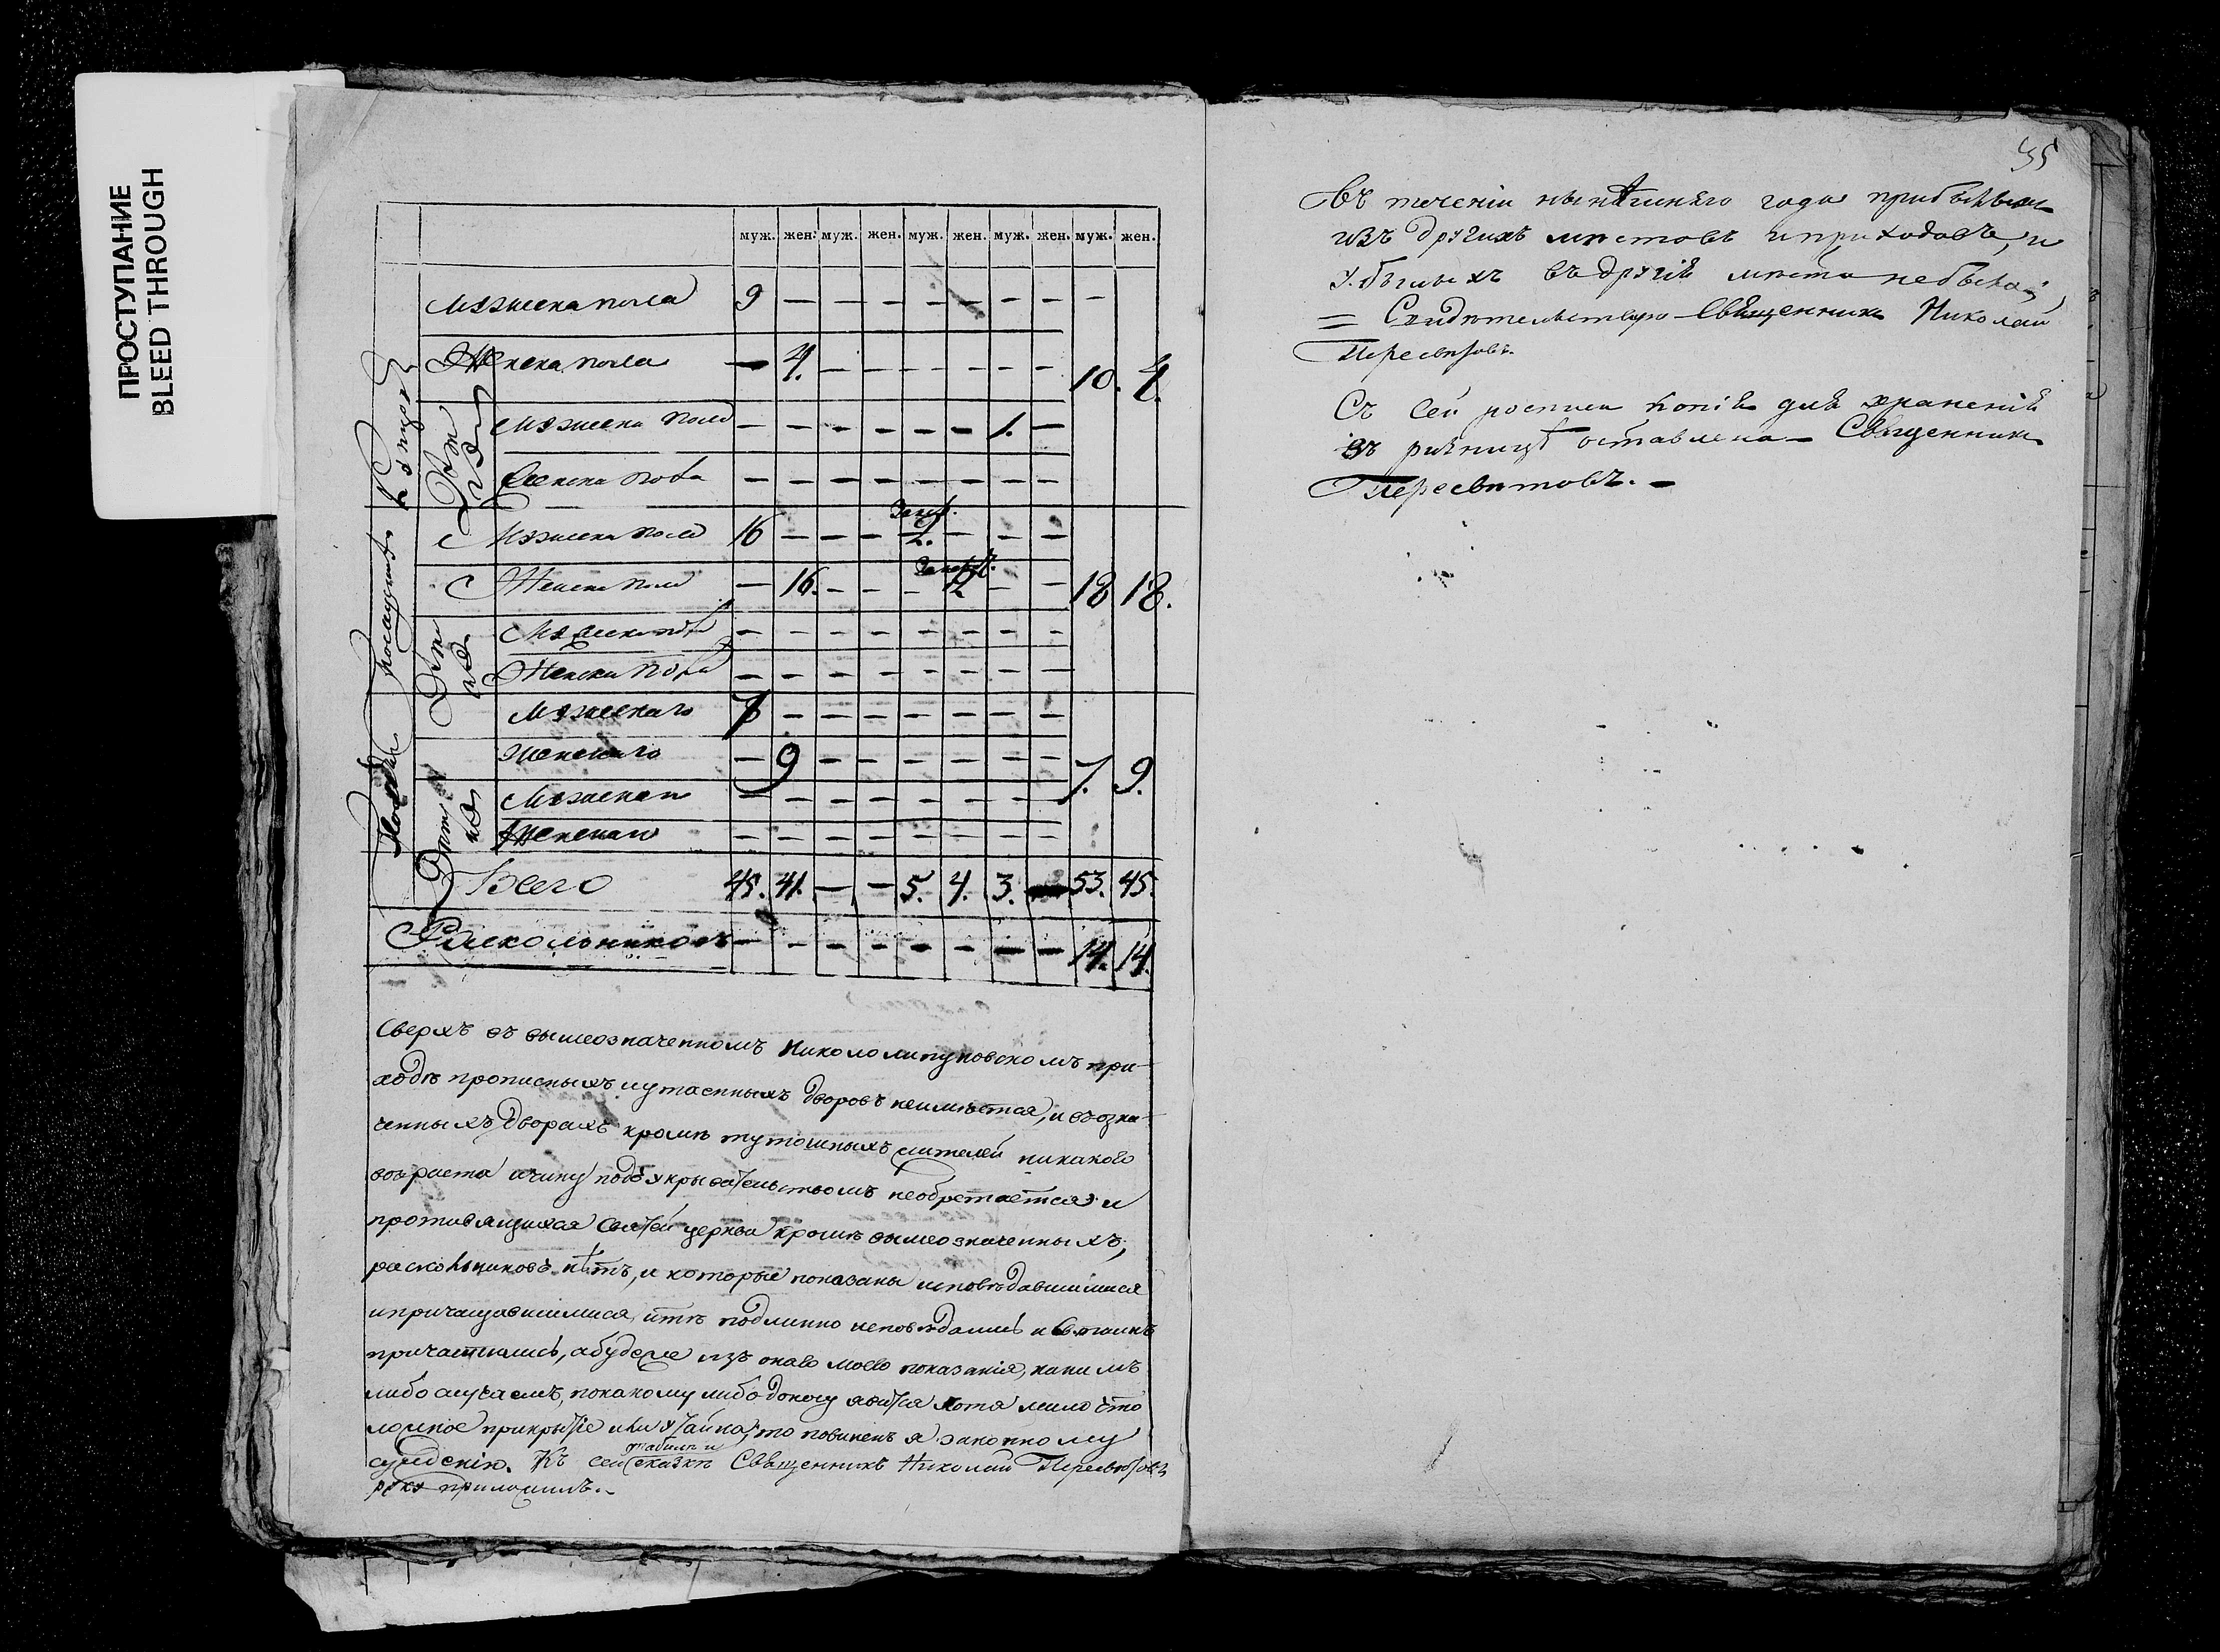 ПРОСТУПАНИЕ
BLEED THROUGH
муж. жен. муж. жен. муж. жен. муж. жен. муж. жен.
Мужеска пола 9 — — — — — — — —
Женска пола — 4. — — — — — — 10. 4.
Мужеска пола — — — — — — 1. —
Женска пола — — — — — — — —
Мужеска пола 16 — — — 2. — — —
Женска пола — 16. — — — 2 — — 18 18.
Мужеска пола — — — — — — — —
Женска пола — — — — — — — —
Мужескаго 7 — — — — — — —
Женскаго — 9 — — — — — — 7. 9.
Мужескаго — — — — — — — —
Женскаго — — — — — — — —
Всего 45. 41. — — 5. 4. 3. — 53. 45.
Раскольниковъ — — — — — — — — 14. 14.
Сверхъ въ вышеозначенномъ Никололипуновскомъ при-
ходѣ прописныхъ и утаенныхъ дворовъ неимѣется, и въ озна-
ченныхъ дворахъ кромѣ тутошныхъ жителей никакого
возраста и чину подъ укрывательствомъ необретается и
противящихся святей церкви кромѣ вышеозначенныхъ,
раскольниковъ нѣтъ, и которые показаны исповѣдавшимися
и причащавшимися, и тѣ подлинно исповѣдались и св. таинъ
причастились, а буде же изъ онаго моего показанія, какимъ
либо случаемъ, по какому либо доносу явится хотя мало что
ложное прикрытіе или утайка, то повиненъ я законному
сужденію. Къ сей табели и
сказкѣ Священникъ Николай Пересвѣтовъ
руку приложилъ.
35
Въ теченіи нынѣшняго года прибылыхъ
изъ другихъ мѣстовъ и приходовъ, и
убылыхъ въ другія мѣста небыло;
= Свидѣтельствую Священникъ Николай
Пересвѣтовъ.
Съ сей росписи копія для храненія
въ ризницѣ оставлена — Священникъ
Пересвѣтовъ. —